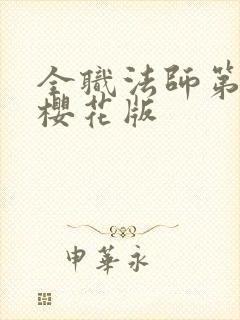 全職法師第
櫻花版
申華永